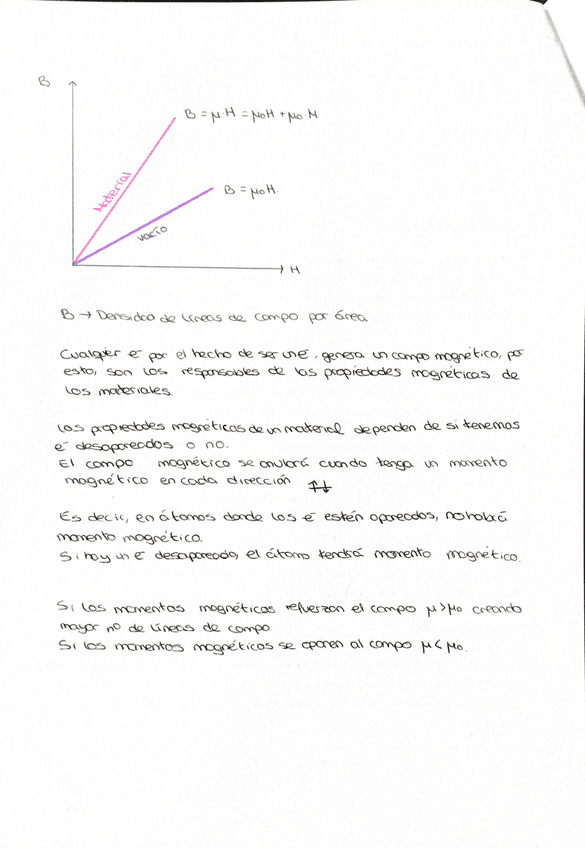 B
B = μ·H = μ₀H + μ₀·M
Material
B = μ₀H.
vacío
H
B → Densidad de líneas de campo por área
Cualquier e⁻ por el hecho de ser un e⁻, genera un campo magnético, por
esto, son los responsables de las propiedades magnéticas de
los materiales.
Las propiedades magnéticas de un material dependen de si tenemos
e⁻ desapareados o no.
El campo magnético se anulará cuando tenga un momento
magnético en cada dirección ↑↓
Es decir, en átomos donde los e⁻ estén apareados, no habrá
momento magnético.
Si hay un e⁻ desapareado, el átomo tendrá momento magnético.
Si los momentos magnéticos refuerzan el campo μ>μ₀ creando
mayor nº de líneas de campo.
Si los momentos magnéticos se oponen al campo μ<μ₀.